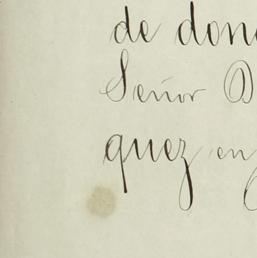 de don
Señor D
quez en